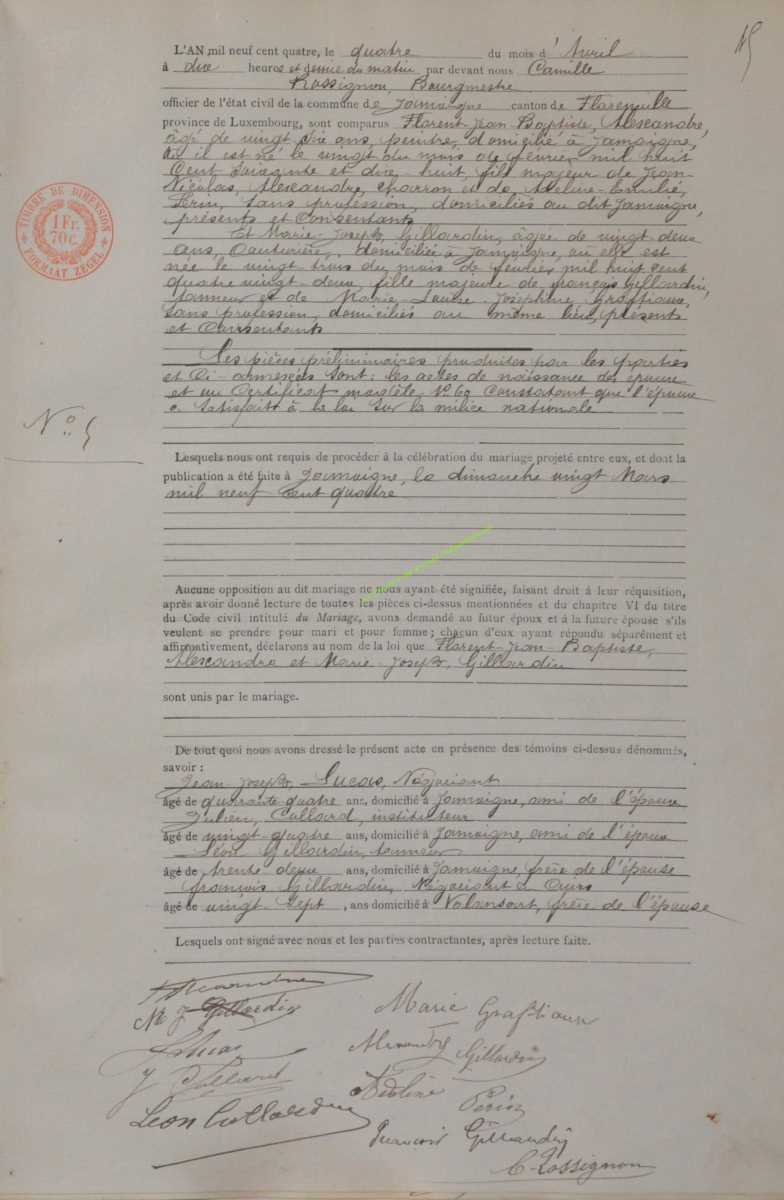 L'AN mil neuf cent quatre, le quatre du mois d'Avril
à dix heures et demie du matin par devant nous Camille
Rossignon, Bourgmestre
officier de l'état civil de la commune de Jamoigne canton de Florenville
province de Luxembourg, sont comparus Florent-Jean-Baptiste, Alexandre,
âgé de vingt six ans, peintre, domicilié à Jamoigne,
où il est né le vingt du mois de février mil huit
Cent soixante et dix-huit, fils majeur de Jean-
Nicolas, Alexandre, charron et de Adeline-Emilie,
Perin, sans profession, domiciliés au dit Jamoigne,
présents et Consentants
Et Marie-Joseph, Gillardin, âgée de vingt deux
ans, Couturière, domiciliée à Jamoigne, où elle est
née le vingt trois du mois de février mil huit cent
quatre vingt-deux, fille majeure de françois Gillardin,
tanneur et de Marie-Louise-Joséphine, Graftiaux,
sans profession, domiciliés au même lieu, présents
et Consentants
Les pièces préliminaires produites par les parties
et ci-annexées sont: les actes de naissance des époux
et un Certificat modèle, N° 69 Constatant que l'époux
a satisfait à la loi sur la milice nationale
N° 5
Lesquels nous ont requis de procéder à la célébration du mariage projeté entre eux, et dont la
publication a été faite à Jamoigne, le dimanche vingt Mars
mil neuf cent quatre
Aucune opposition au dit mariage ne nous ayant été signifiée, faisant droit à leur réquisition,
après avoir donné lecture de toutes les pièces ci-dessus mentionnées et du chapitre VI du titre
du Code civil intitulé du Mariage, avons demandé au futur époux et à la future épouse s'ils
veulent se prendre pour mari et pour femme; chacun d'eux ayant répondu séparément et
affirmativement, déclarons au nom de la loi que Florent-Jean-Baptiste,
Alexandre et Marie-Joseph, Gillardin
sont unis par le mariage.
De tout quoi nous avons dressé le présent acte en présence des témoins ci-dessus dénommés,
savoir :
Jean-Joseph, Lucas, Négociant
âgé de quarante quatre ans, domicilié à Jamoigne, ami de l'époux
Julien, Collard, instituteur
âgé de vingt quatre ans, domicilié à Jamoigne, ami de l'époux
Léon Gillardin, tanneur
âgé de trente deux ans, domicilié à Jamoigne, frère de l'épouse
françois Gillardin, Négociant
âgé de vingt sept, ans domicilié à Valansart, frère de l'épouse
Lesquels ont signé avec nous et les parties contractantes, après lecture faite.
Alexandre
M J Gillardin
Marie Graftiaux
Lucas
Alexandre Gillardin
J Collard
Adeline Périn
Léon Gillardin
François Gillardin
C. Rossignon
TIMBRE DE DIMENSION
1 Fr.
70 c.
FORMAAT ZEGEL